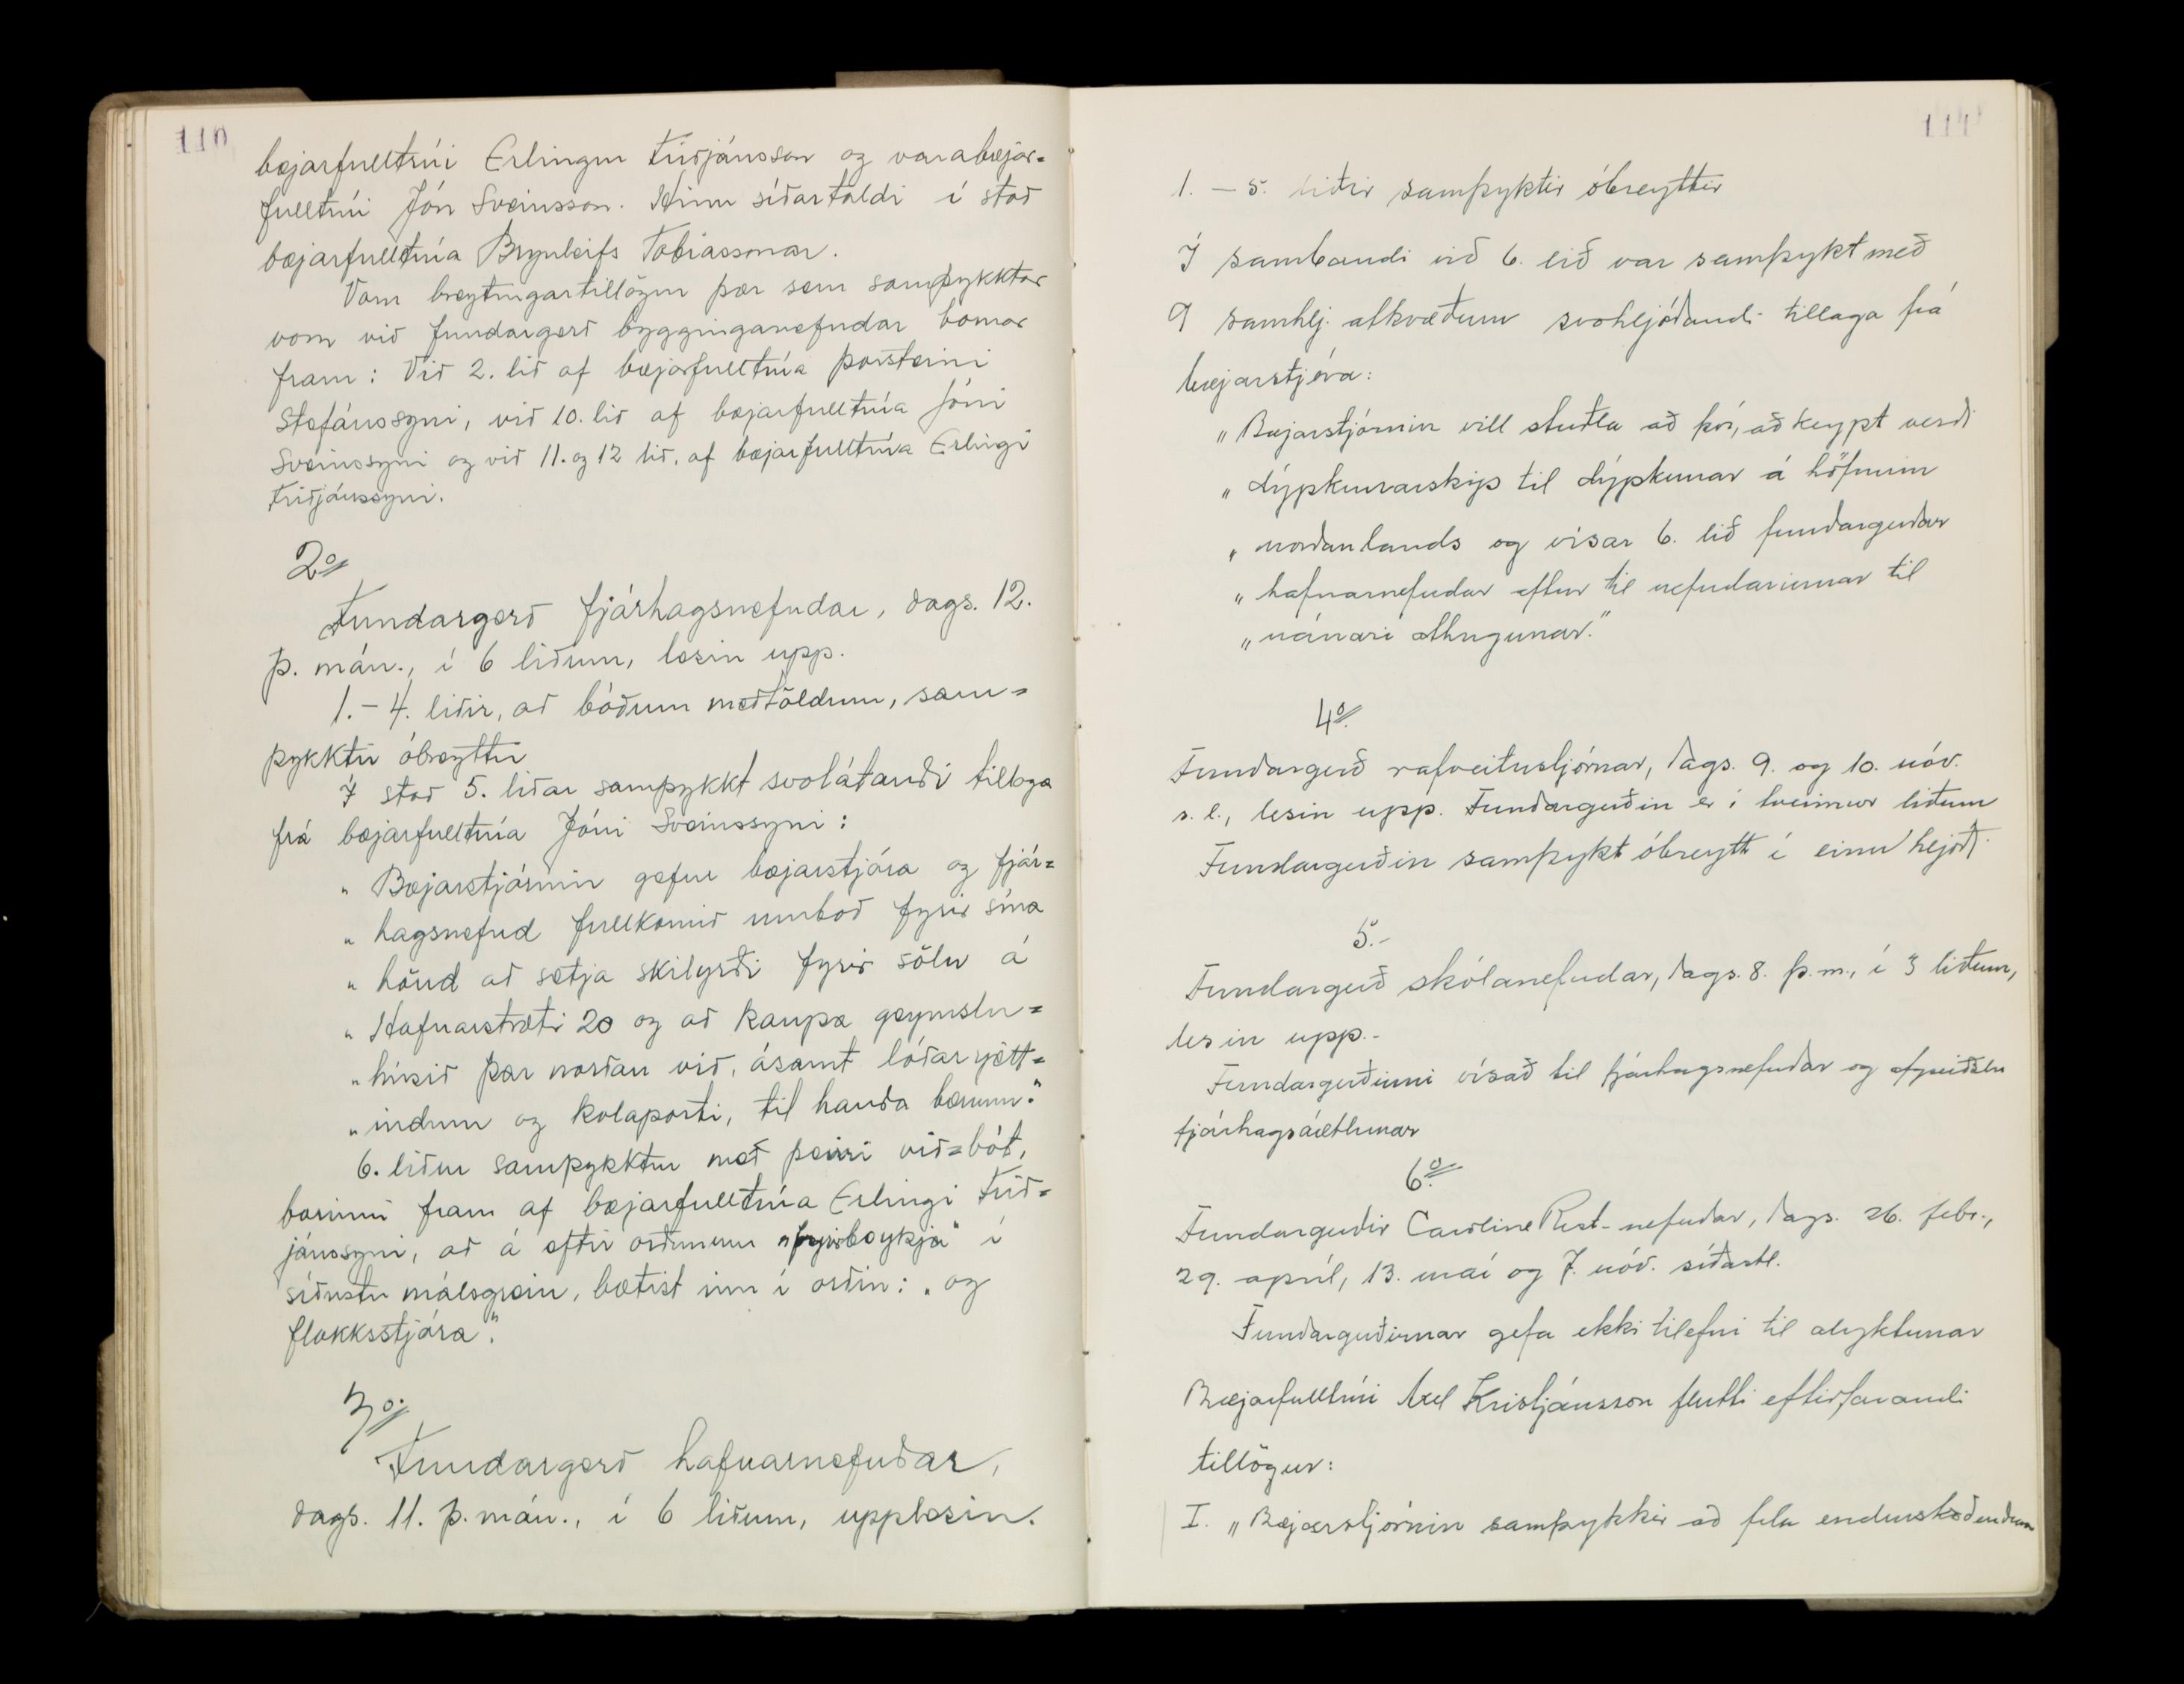 110
bæjarfulltrúi Erlingur Friðjónsson og varabæjar=
fulltrúi Jón Sveinsson. Hinn síðartaldi í stað
bæjarfulltrúa Brynleifs Tobiassonar.
Voru breytingartillögur þær sem samþykktar
voru við fundargerð bygginganefndar bornar
fram: Við 2. lið af bæjarfulltrúa Þorsteini
Stefánssyni, við 10. lið af bæjarfulltrúa Jóni
Sveinssyni og við 11. og 12 lið, af bæjarfulltrúa Erlingi
Friðjónssyni.
2o
Fundargerð fjárhagsnefndar, dags. 12.
þ. mán., í 6 liðum, lesin upp.
1.-4. liðir, að báðum meðtöldum, sam=
þykktir óbreyttir
Í stað 5. liðar samþykkt svolátandi tillaga
frá bæjarfulltrúa Jóni Sveinssyni:
„ Bæjarstjórnin gefur bæjarstjóra og fjár=
„ hagsnefnd fullkomið umboð fyrir sína
„ hönd að setja skilyrði fyrir sölu á
„ Hafnarstræti 20 og að kaupa geymslu=
„ húsið þar norðan við, ásamt lóðarrjett=
„ indum og kolaporti, til handa bænum."
6. liður samþykktur með þeirri við=bót,
borinni fram af bæjarfulltrúa Erlingi Frið=
jónssyni, að á eftir orðunum „fyrirboykja" í
síðustu málsgrein, bætist inn í orðin: „og
flokksstjóra".
3o.
Fundargerð hafnarnefndar,
dags. 11. þ. mán., í 6 liðum, upplesin.
1. – 5. liðir samþyktir óbreyttir
Í sambandi við 6. lið var samþykt með
9 samhlj. atkvæðum svohljóðandi tillaga frá
bæjarstjóra:
„ Bæjarstjórnin vill stuðla að því, að keypt verði
„ dýpkunarskip til dýpkunar á höfnum
„ norðanlands og vísar 6. lið fundargerðar
„ hafnarnefndar aftur til nefndarinnar til
„ nánari athugunar."
4o.
Fundargerð rafveitustjórnar, dags. 9. og 10. nóv.
s. l., lesin upp. Fundargerðin er í tveimur liðum
Fundargerðin samþykt óbreytt í einu hljóði.
5.-
Fundargerð skólanefndar, dags. 8. þ.m., í 3 liðum,
lesin upp.-
Fundargerðinni vísað til fjárhagsnefndar og afgreiðslu
fjárhagsáætlunar
6o.
Fundargerðir Caroline Rest-nefndar, dags. 26. febr.,
29. apríl, 13. maí og 7. nóv. síðastl.
Fundargerðirnar gefa ekki tilefni til alyktunar
Bæjarfulltrúi Axel Kristjánsson flutti eftirfarandi
tillögur:
I. „ Bæjarstjórnin samþykkir að fela endurskoðendum